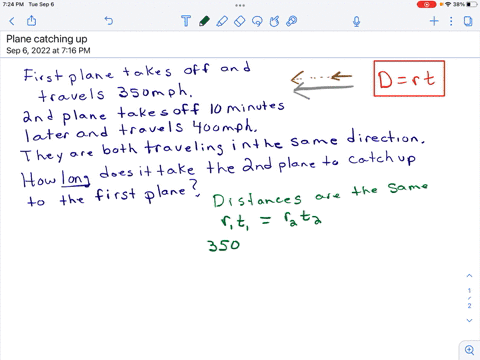 7:24 PM Tue Sep 6
38%
Plane catching up
Sep 6, 2022 at 7:16 PM
First plane takes off and
travels 350mph.
2nd plane takes off 10 minutes
later and travels 400mph.
They are both traveling in the same direction.
How long does it take the 2nd plane to catch up
to the first plane?
D = r t
Distances are the same
r₁t₁ = r₂t₂
350
1
r
2